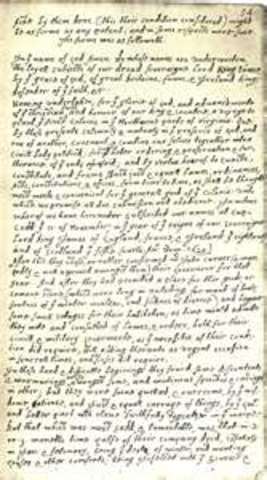 54
first by them done (this their condition considered) might
be as firme as any patent; and in some respects more sure.
The forme was as followeth.
In yͤ name of god Amen. we whose names are underwriten,
the loyall subjects of our dread soveraigne Lord King James
by yͤ grace of god, of great Britaine, franc, & Ireland king,
defender of yͤ faith, &c.
Haveing undertaken, for yͤ glorie of god, and advancemente
of yͤ christian faith and honour of our king & countrie, a voyage to
plant yͤ first colonie in yͤ Northerne parts of Virginia. doe
by these presents solemnly & mutualy in yͤ presence of god, and
one of another, covenant, & combine our selves togeather into a
Civill body politick; for our better ordering, & preservation & fur-
therance of yͤ ends aforesaid; and by vertue hearof, to enacte,
constitute, and frame shuch just & equall Lawes, ordinances,
Acts, constitutions, & offices, from time to time, as shall be thought
most meete & convenient for yͤ generall good of yͤ colonie: unto
which we promise all due submission and obedience. In witnes
wherof we have hereunder subscribed our names at Cap-
Codd yͤ .11. of November, in yͤ year of yͤ raigne of our soveraigne
Lord king James of England, France, & Ireland yͤ eighteenth
and of Scotland yͤ fiftie fourth. An°: Dom. 1620.
After this they chose, or rather confirmed mr John Carver (a man
godly & well approved amongst them) their Governour for that
year. And after they had provided a place for their goods, or
comone store, (which were long in unlading for want of boats,
foulnes of winter weather, and sicknes of diverce) and begune
some small cottages for their habitation; as time would admitte
they mette and consulted of lawes, & orders, both for their
civill, & military governmente, as yͤ necessitie of their condi-
tion did require, still adding therunto as urgent occasion
in severall times, and as cases did require.
In these hard & difficulte beginings they found some discontents
& murmurings arise amongst some, and mutinous speeches & carriags
in other; but they were soone quelled, & overcome, by yͤ wis-
dome, patience, and just & equall carrage of things, by yͤ Govʳ
and better part wᶜʰ clave faithfully togeather in yͤ maine.
But that which was most sadd, & lamentable, was, that in 2.
or 3. moneths time halfe of their company dyed, espetialy
in Jan: & february, being yͤ depth of winter, and wanting
houses & other comforts; being infected with yͤ scurvie &